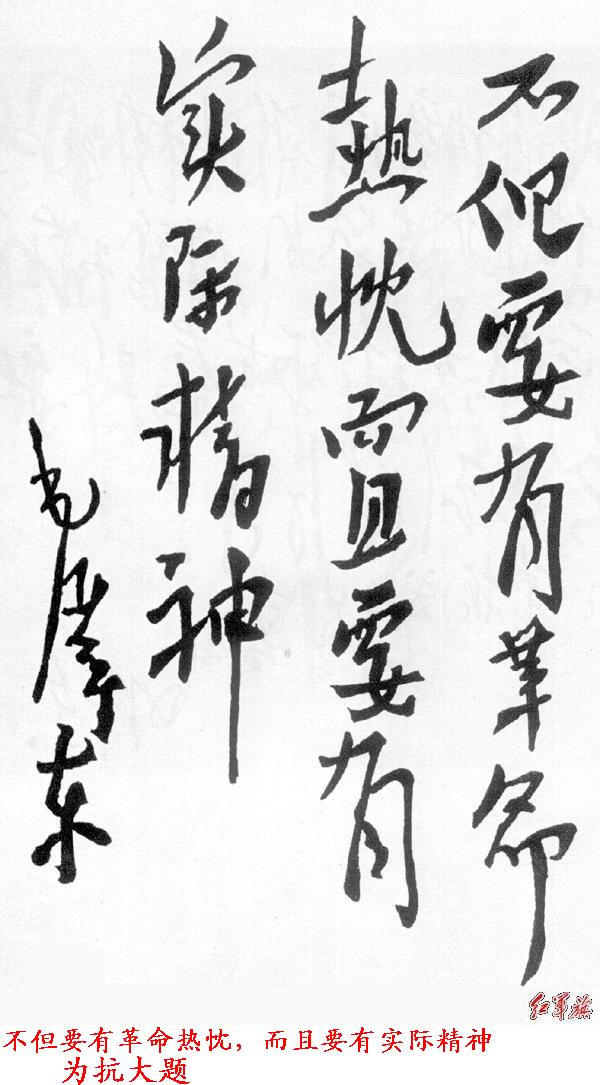 不但要有革命
熱忱而且要有
實际精神
毛澤东
红军旗
不但要有革命热忱，而且要有实际精神
为抗大题